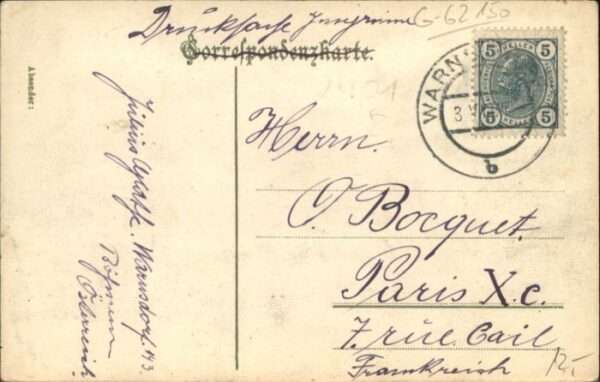 Drucksache
G-62150
Correspondenzkarte.
Absender:
Julius
Warnsdorf
Böhmen
Österreich
WARNS
b
5 HELLER 5
5 5
Herrn.
O. Bocquet.
Paris X.c.
7. rue Cail
Frankreich
12.-